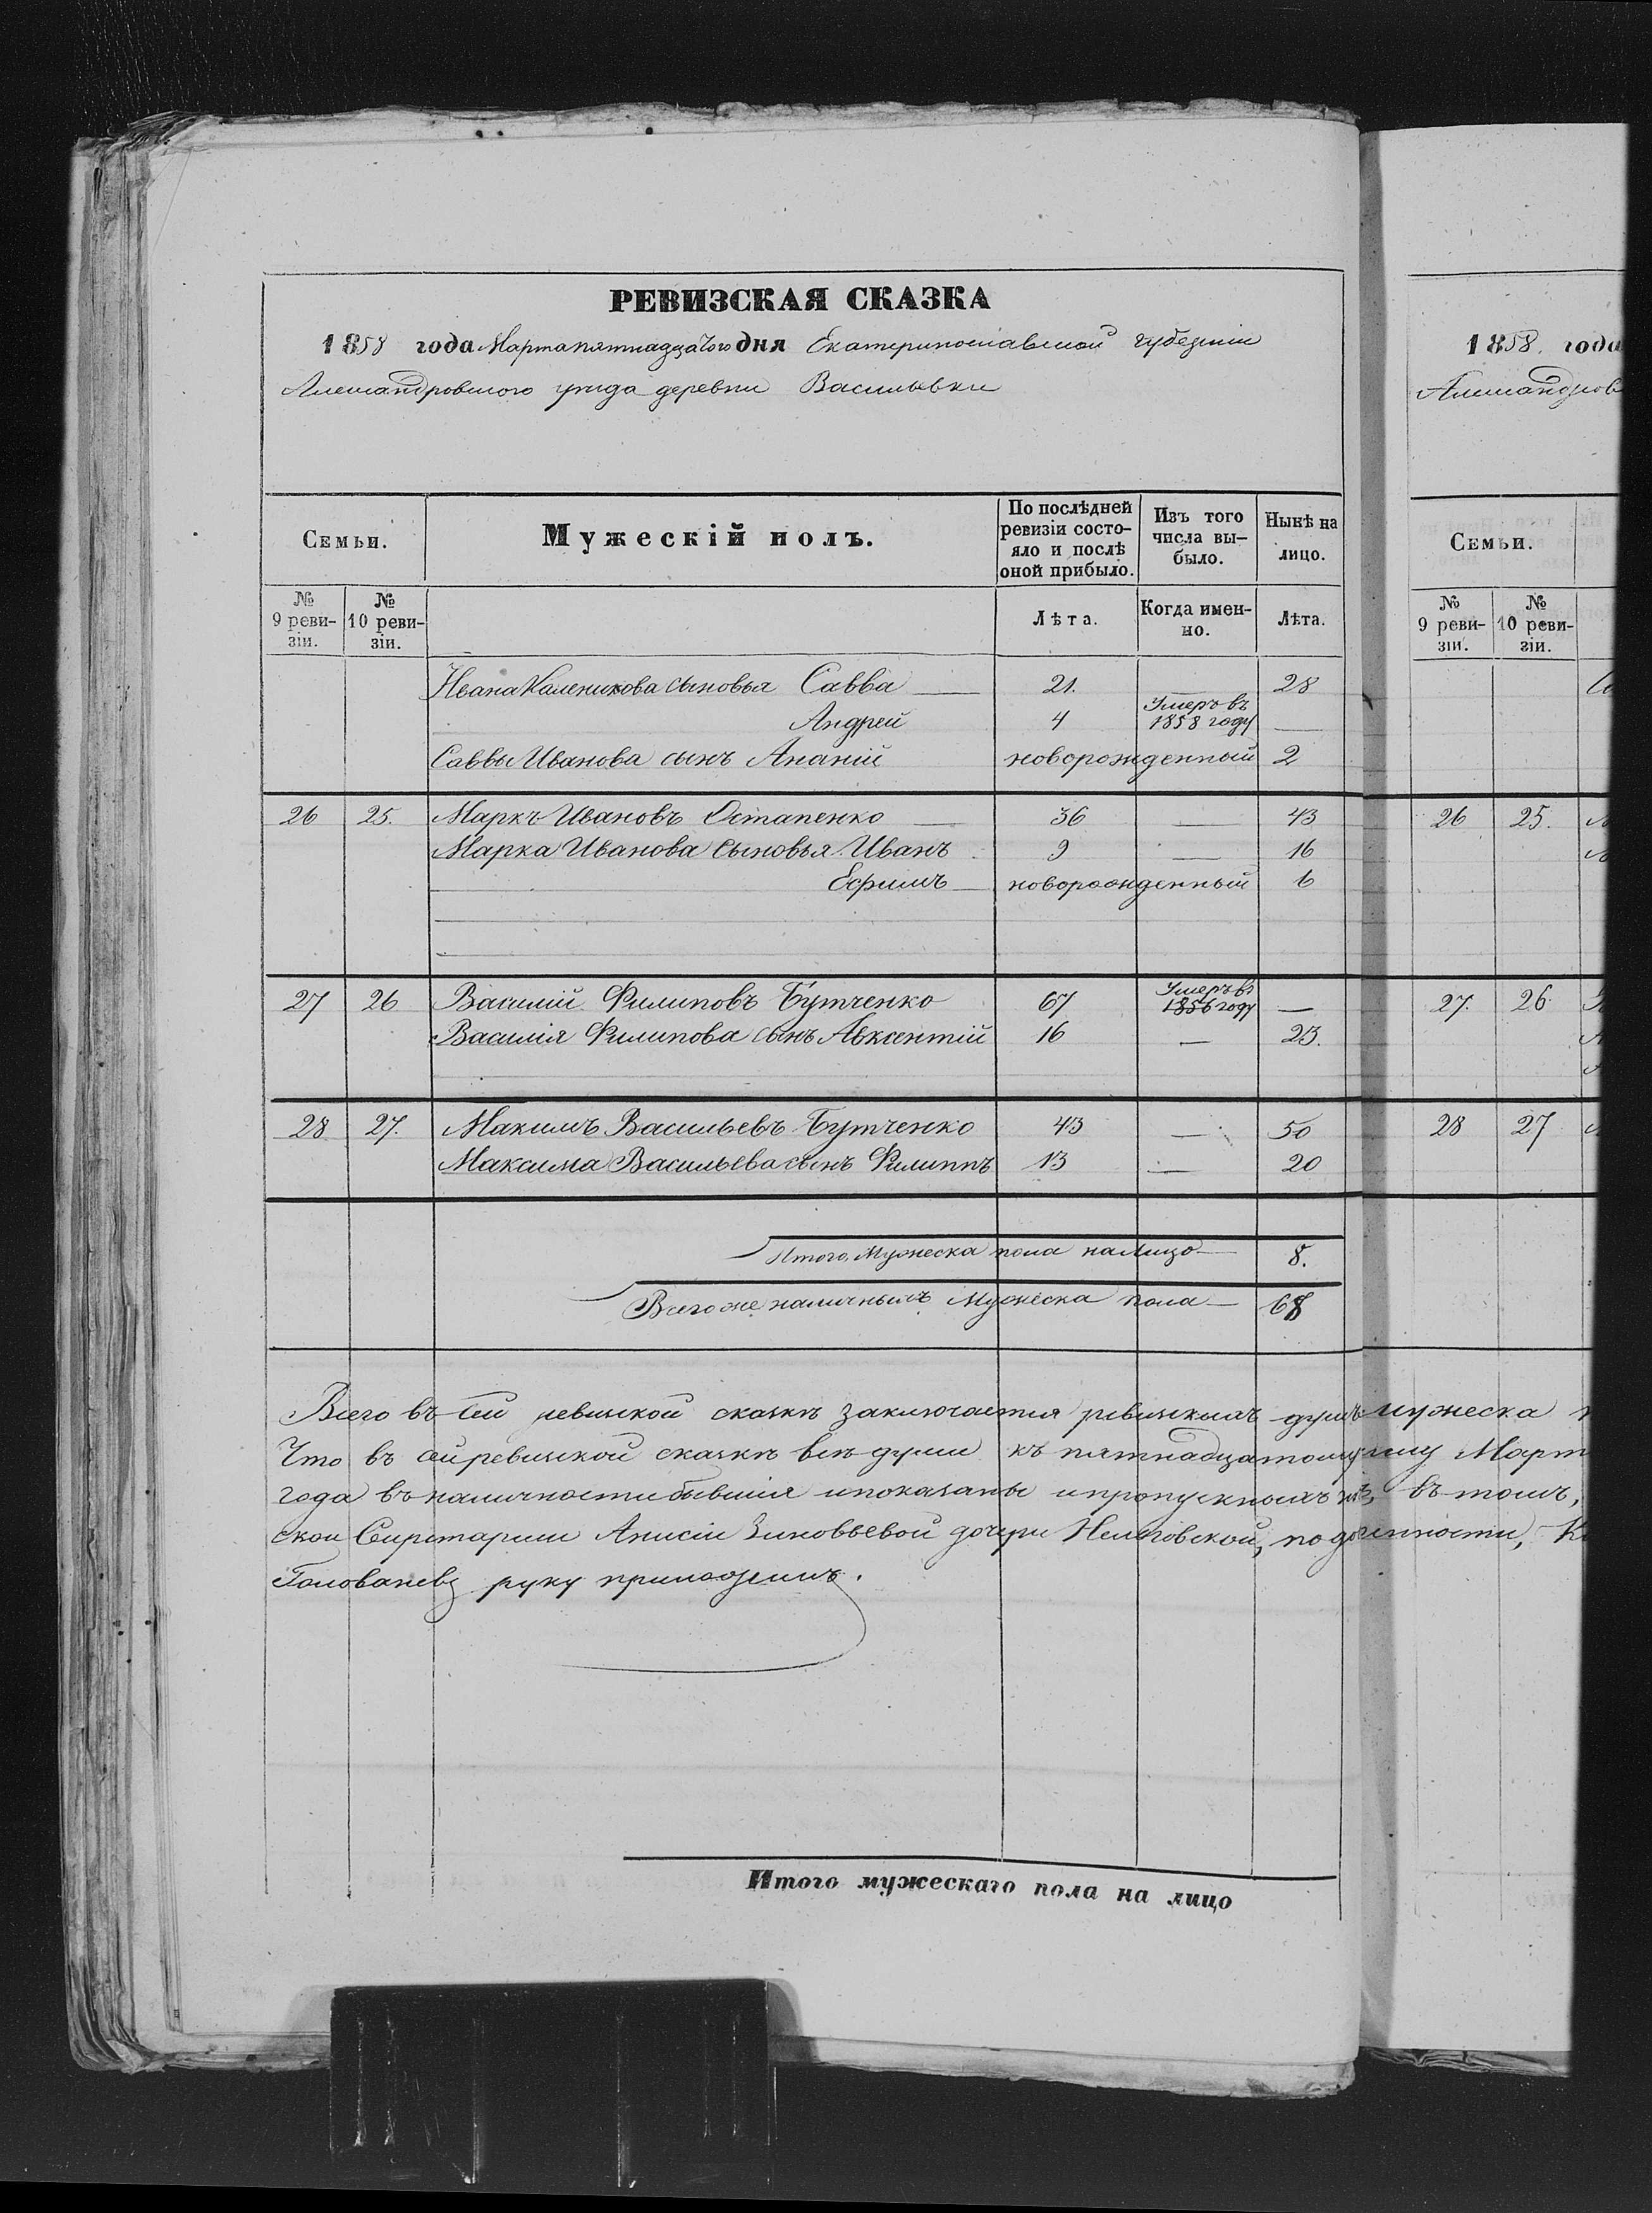 РЕВИЗСКАЯ СКАЗКА
1858 года Марта пятнадцатого дня Екатеринославской губерніи
Александровского уезда деревни Васильевки
Семьи. Мужескій полъ. По послѣдней ревизіи состояло и послѣ оной прибыло. Изъ того числа выбыло. Нынѣ на лицо.
№ 9 ревизіи. № 10 ревизіи. Лѣта. Когда именно. Лѣта.
Ивана Каленикова сыновья Савва — 21. — 28
Андрей 4 Умеръ въ 1858 году —
Саввы Иванова сынъ Ананій новорожденный 2
26 25. Маркъ Ивановъ Остапенко — 36 — 43
Марка Иванова сыновья Иванъ 9 — 16
Ефимъ — новорожденный 6
27 26 Василій Филиповъ Бутченко 67 Умеръ въ 1856 году —
Василія Филипова сынъ Авксентій 16 — 23.
28 27. Макимъ Васильевъ Бутченко 43 — 50
Максима Васильева сынъ Филиппъ 13 — 20
Итого Мужеска пола на лицо — 8.
Всего же наличныхъ Мужеска пола — 68
Всего въ сей ревизкой сказкѣ заключается ревизкихъ душъ мужеска
Что въ сей ревизкой сказкѣ всѣ души къ пятнадцатому Март
года въ наличности бывшія и показаны и пропускныхъ нѣтъ, въ томъ,
ской Секретарши Анисіи Зиновьевой дочери
руку приложилъ.
Итого мужескаго пола на лицо
1858. года
Александров
Семьи.
№ 9 ревизіи. № 10 ревизіи.
26 25.
27. 26
28 27